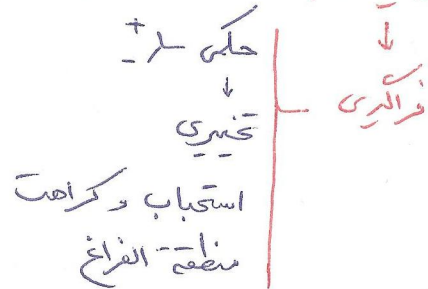 فراگیری
حکمی ± 
تخییری
استحباب و کراهت
منطقة الفراغ